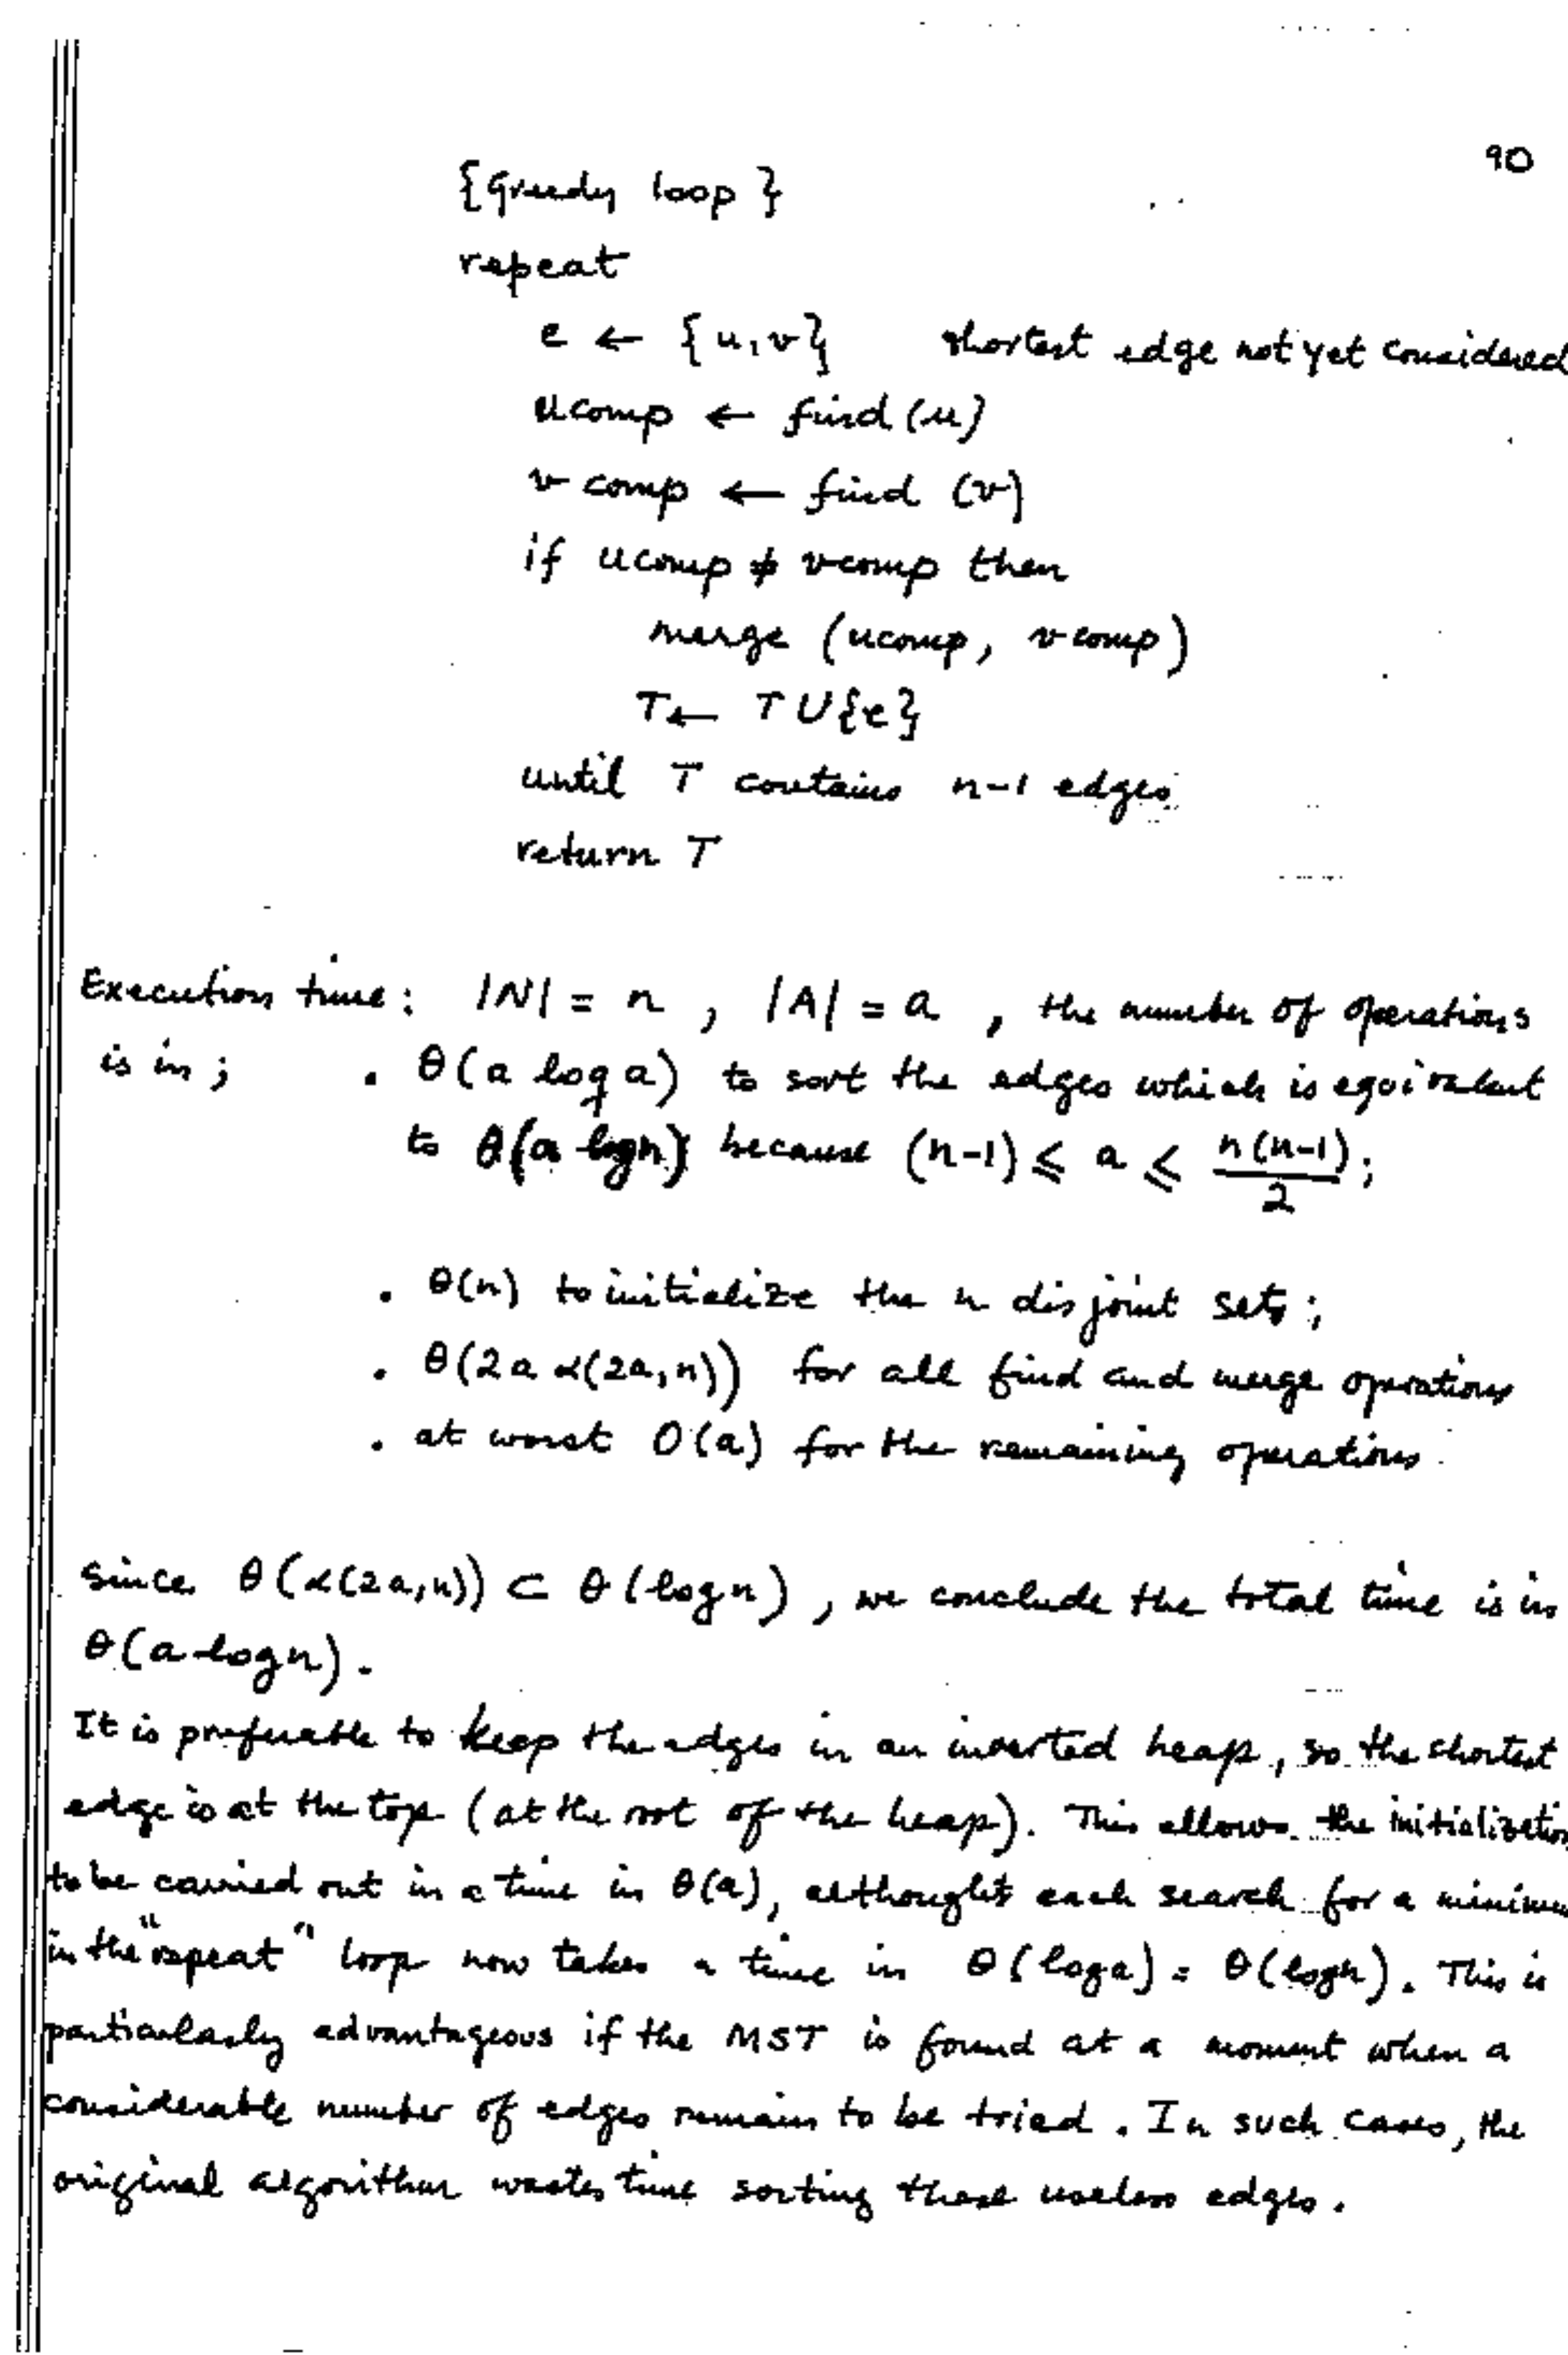 90
{Greedy loop}
repeat
e ← {u,v} shortest edge not yet considered
ucomp ← find(u)
vcomp ← find (v)
if ucomp ≠ vcomp then
merge (ucomp, vcomp)
T ← T ∪ {e}
until T contains n-1 edges
return T
Execution time: |N| = n , |A| = a , the number of operations
is in ; . θ(a log a) to sort the edges which is equivalent
to θ(a logn) because (n-1) ≤ a ≤ n(n-1)/2 ;
. θ(n) to initialize the n disjoint sets ;
. θ(2a α(2a,n)) for all find and merge operations
. at worst O(a) for the remaining operations
since θ(α(2a,n)) ⊂ θ(logn) , we conclude the total time is in
θ(a logn).
It is preferable to keep the edges in an inverted heap, so the shortest
edge is at the top (at the root of the heap). This allows the initialization
to be carried out in a time in θ(a), although each search for a minimum
in the "repeat" loop now takes a time in θ(loga) = θ(logn). This is
particularly advantageous if the MST is found at a moment when a
considerable number of edges remain to be tried. In such cases, the
original algorithm wastes time sorting these useless edges.